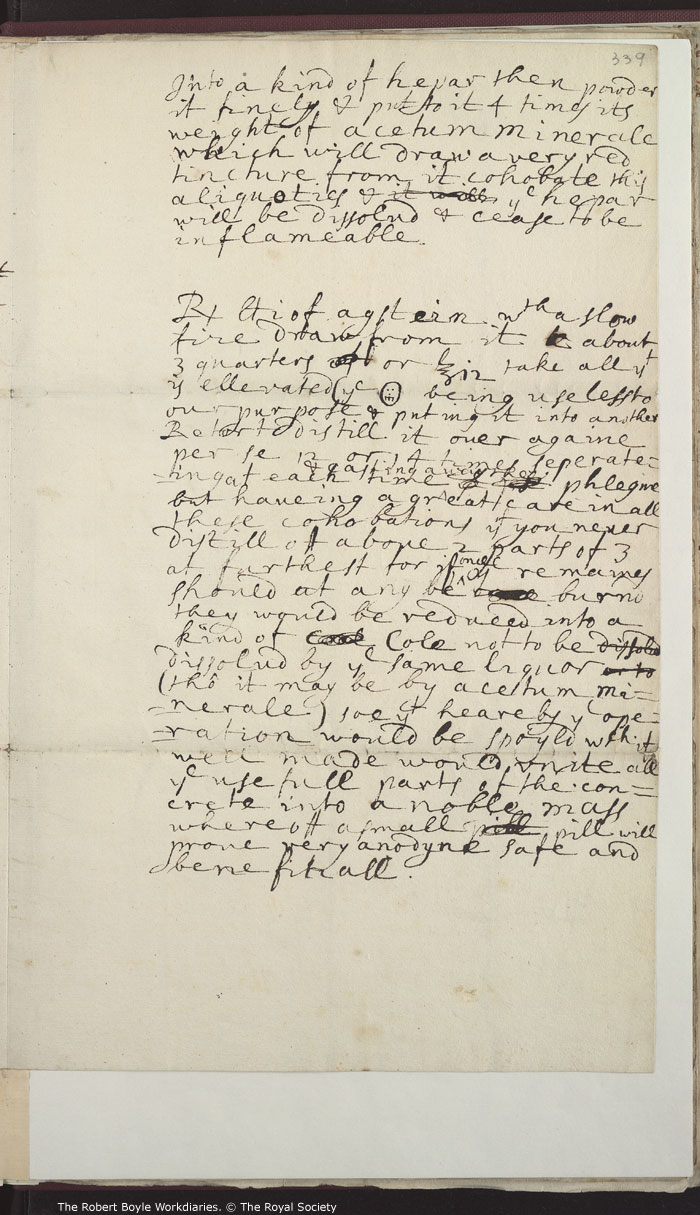 339
Into a kind of hepar then powder
it finely & put to it 4 times its
weight of acetum minerale
which will draw a very red
tincture from it cohobate this
aliquoties & it will yᵉ hepar
will be dissolud & cease to be
inflameable.
℞ of wᵗʰ a slow
fire draw from it about
3 quarters or ʒ12 take all yᵗ
is ellevated (yᵉ being uselessto
our purpose & puting it into another
Retort distill it over againe
per se 12 or 14 times seperate=
=ingat each time phlegme
& casting away
but haueing a great care in all
these cohobations yᵗ you neuer
distill off aboue 2 parts of 3
at furthest for if remains
should at any be burnd
once
they would be reduced into a
kind of Cole not to be dissolud
dissolud by yᵉ same liquor or to
(tho it may be by acetum mi=
=nerale) soe yᵗ heareby yᵉ ope=
=ration would be spoyld wᶜʰ if
well made would vnite all
yᵉ usefull parts of the con=
crete into a noble mass
whereoff a small pill pill will
proue very anodyne safe and
benefitiall.
The Robert Boyle Workdiaries. © The Royal Society